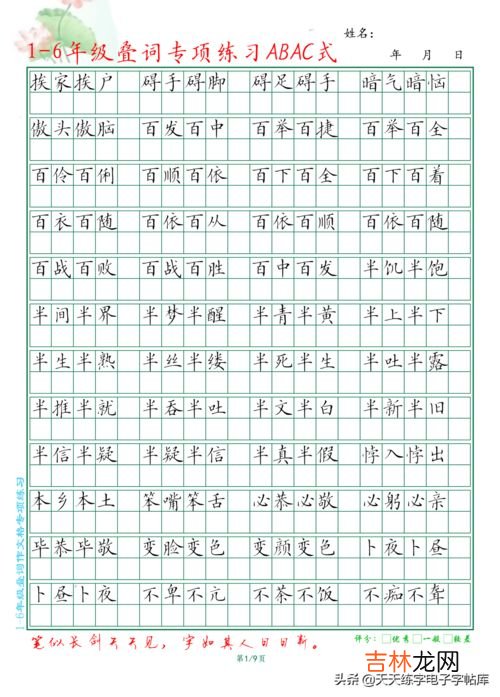 姓名：
1-6年级叠词专项练习ABAC式
年 月 日
挨家挨户 碍手碍脚 碍足碍手 暗气暗恼
傲头傲脑 百发百中 百举百捷 百举百全
百伶百俐 百顺百依 百下百全 百下百着
百衣百随 百依百从 百依百顺 百依百随
百战百败 百战百胜 百中百发 半饥半饱
半间半界 半梦半醒 半青半黄 半上半下
半生半熟 半丝半缕 半死半生 半吐半露
半推半就 半吞半吐 半文半白 半新半旧
半信半疑 半疑半信 半真半假 悖入悖出
本乡本土 笨嘴笨舌 必恭必敬 必躬必亲
毕恭毕敬 变脸变色 变颜变色 卜夜卜昼
卜昼卜夜 不卑不亢 不茶不饭 不痴不聋
1-6年级叠词作文格专项练习
笔似长剑天天见，字如其人日日新。
评分：□优秀□一般□较差
第1/9页
吉林龙网
头条@天天练字电子字帖库